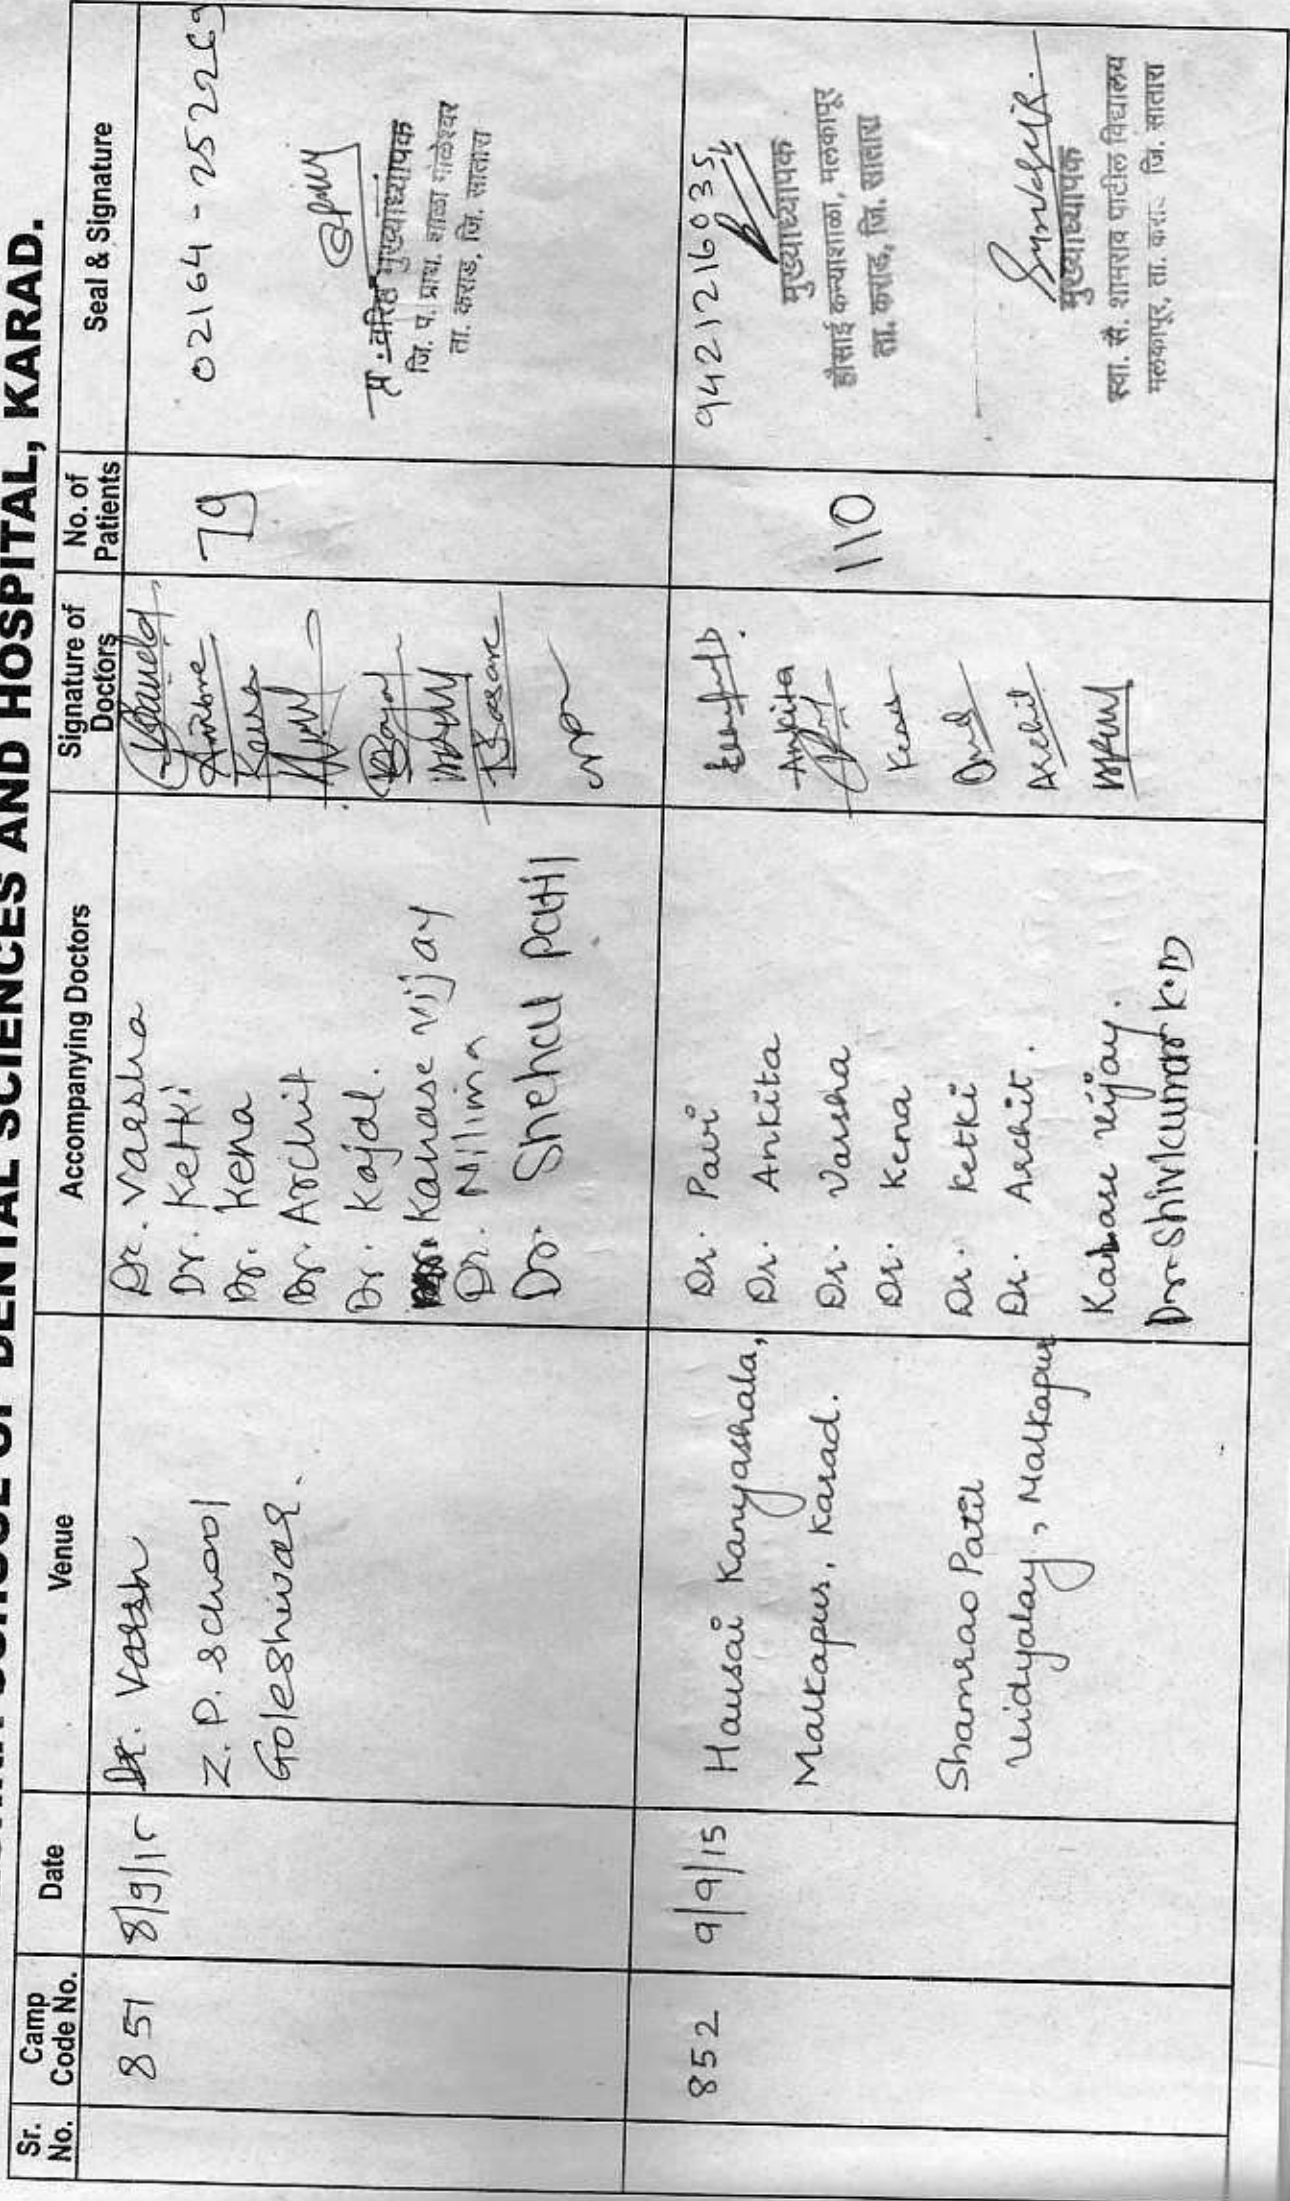 SCHOOL OF DENTAL SCIENCES AND HOSPITAL, KARAD.
Sr. No.
Camp Code No.
Date
Venue
Accompanying Doctors
Signature of Doctors
No. of Patients
Seal & Signature
851
8/9/15
Dr. Varsh
Z. P. School
Goleshwar.
Dr. Varsha
Dr. Ketki
Dr. Kena
Dr. Archit
Dr. Kajal.
Kanase Vijay
Dr. Nilima
Dr. Snehal Patil
79
02164-252269
प्र. वरिष्ठ मुख्याध्यापक
जि. प. प्राथ. शाळा गोळेश्वर
ता. कराड, जि. सातारा
852
9/9/15
Hausai Kanyashala,
Malkapur, Karad.
Shamrao Patil
Vidyalay, Malkapur
Dr. Pavi
Dr. Ankita
Dr. Varsha
Dr. Kena
Dr. Ketki
Dr. Archit.
Kanase Vijay.
Dr. Shivkumar K.D
Ankita
Archit
110
मुख्याध्यापक
हौसाई कन्याशाळा, मलकापूर
ता. कराड, जि. सातारा
मुख्याध्यापक
स्वा. सै. शामराव पाटील विद्यालय
मलकापूर, ता. कराड जि. सातारा